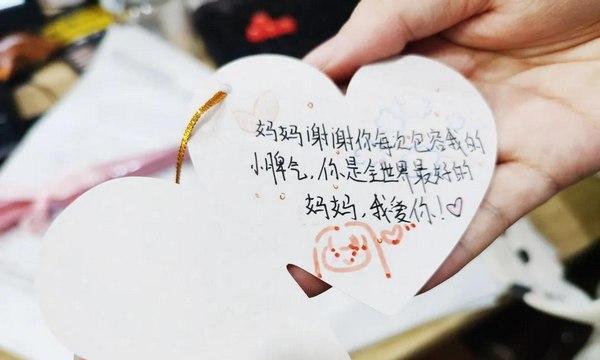 妈妈谢谢你每次包容我的
小脾气,你是全世界最好的
妈妈,我爱你!♡